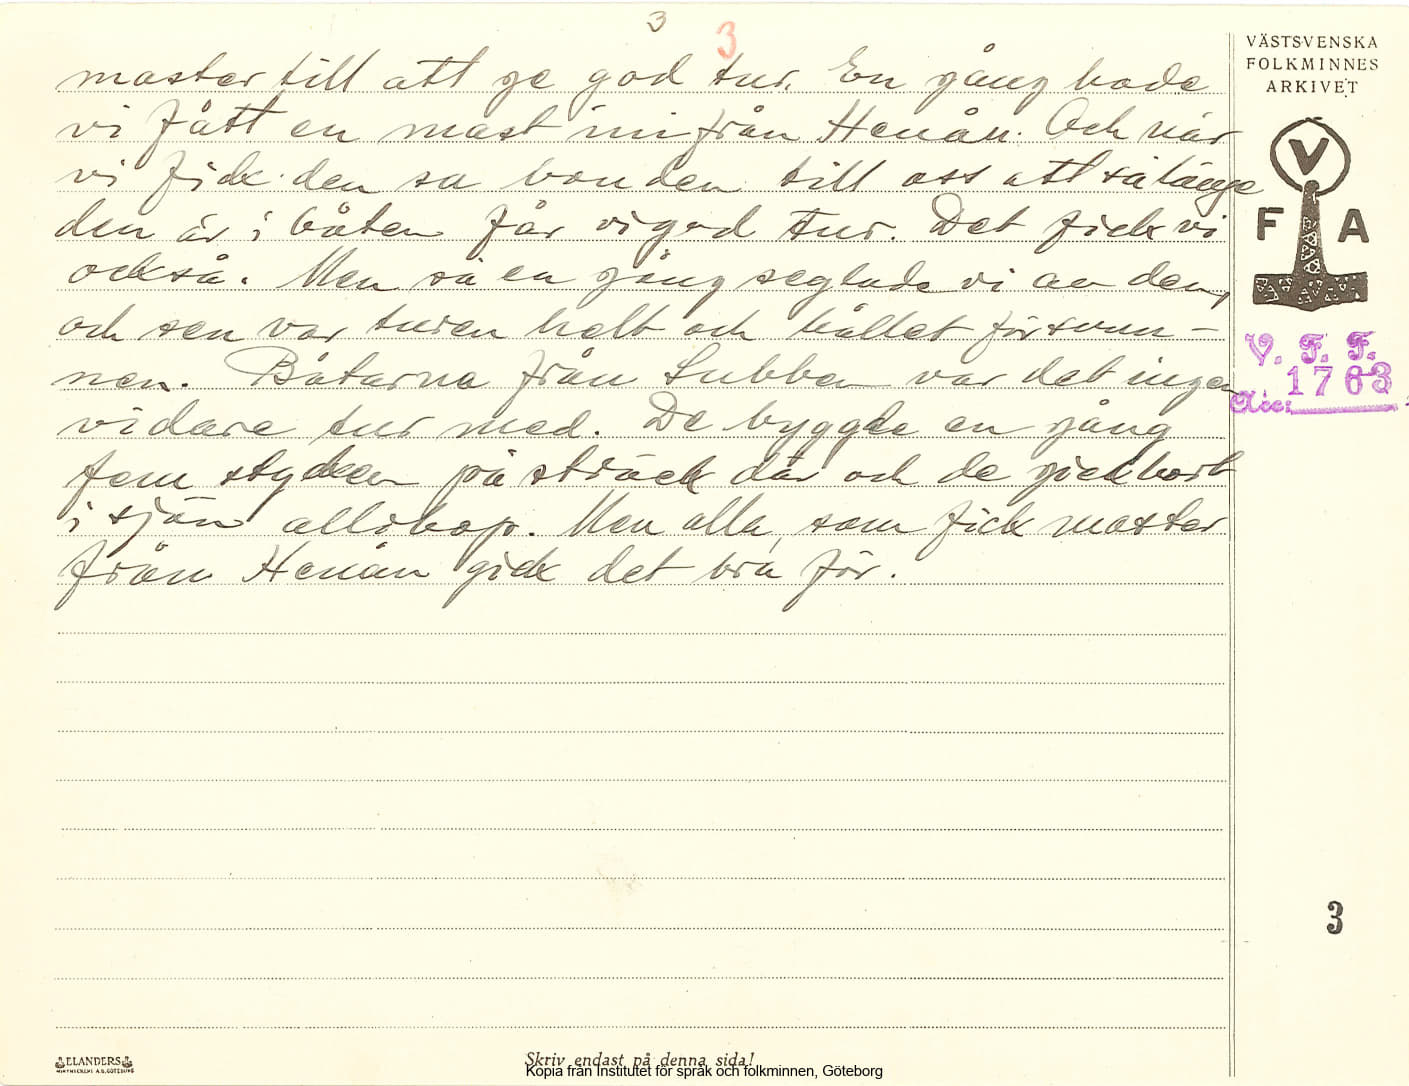 3
3
master till att ge god tur. En gång hade
vi fått en mast inifrån Henån. Och när
vi fick den sa bonden till oss att så länge
den är i båten får vi god tur. Det fick vi
också. Men så en gång seglade vi av den,
och sen var turen helt och hållet försvun-
nen. Båtarna från Lubben var det ingen
vidare tur med. De byggde en gång
fem stycken på sträck där och de gick bort
i sjön allihop. Men alla, som fick master
från Henån gick det bra för.
VÄSTSVENSKA
FOLKMINNES
ARKIVET
V
F A
V. F. F.
Acc: 1763
3
ELANDERS
Skriv endast på denna sida!
Kopia från Institutet för språk och folkminnen, Göteborg